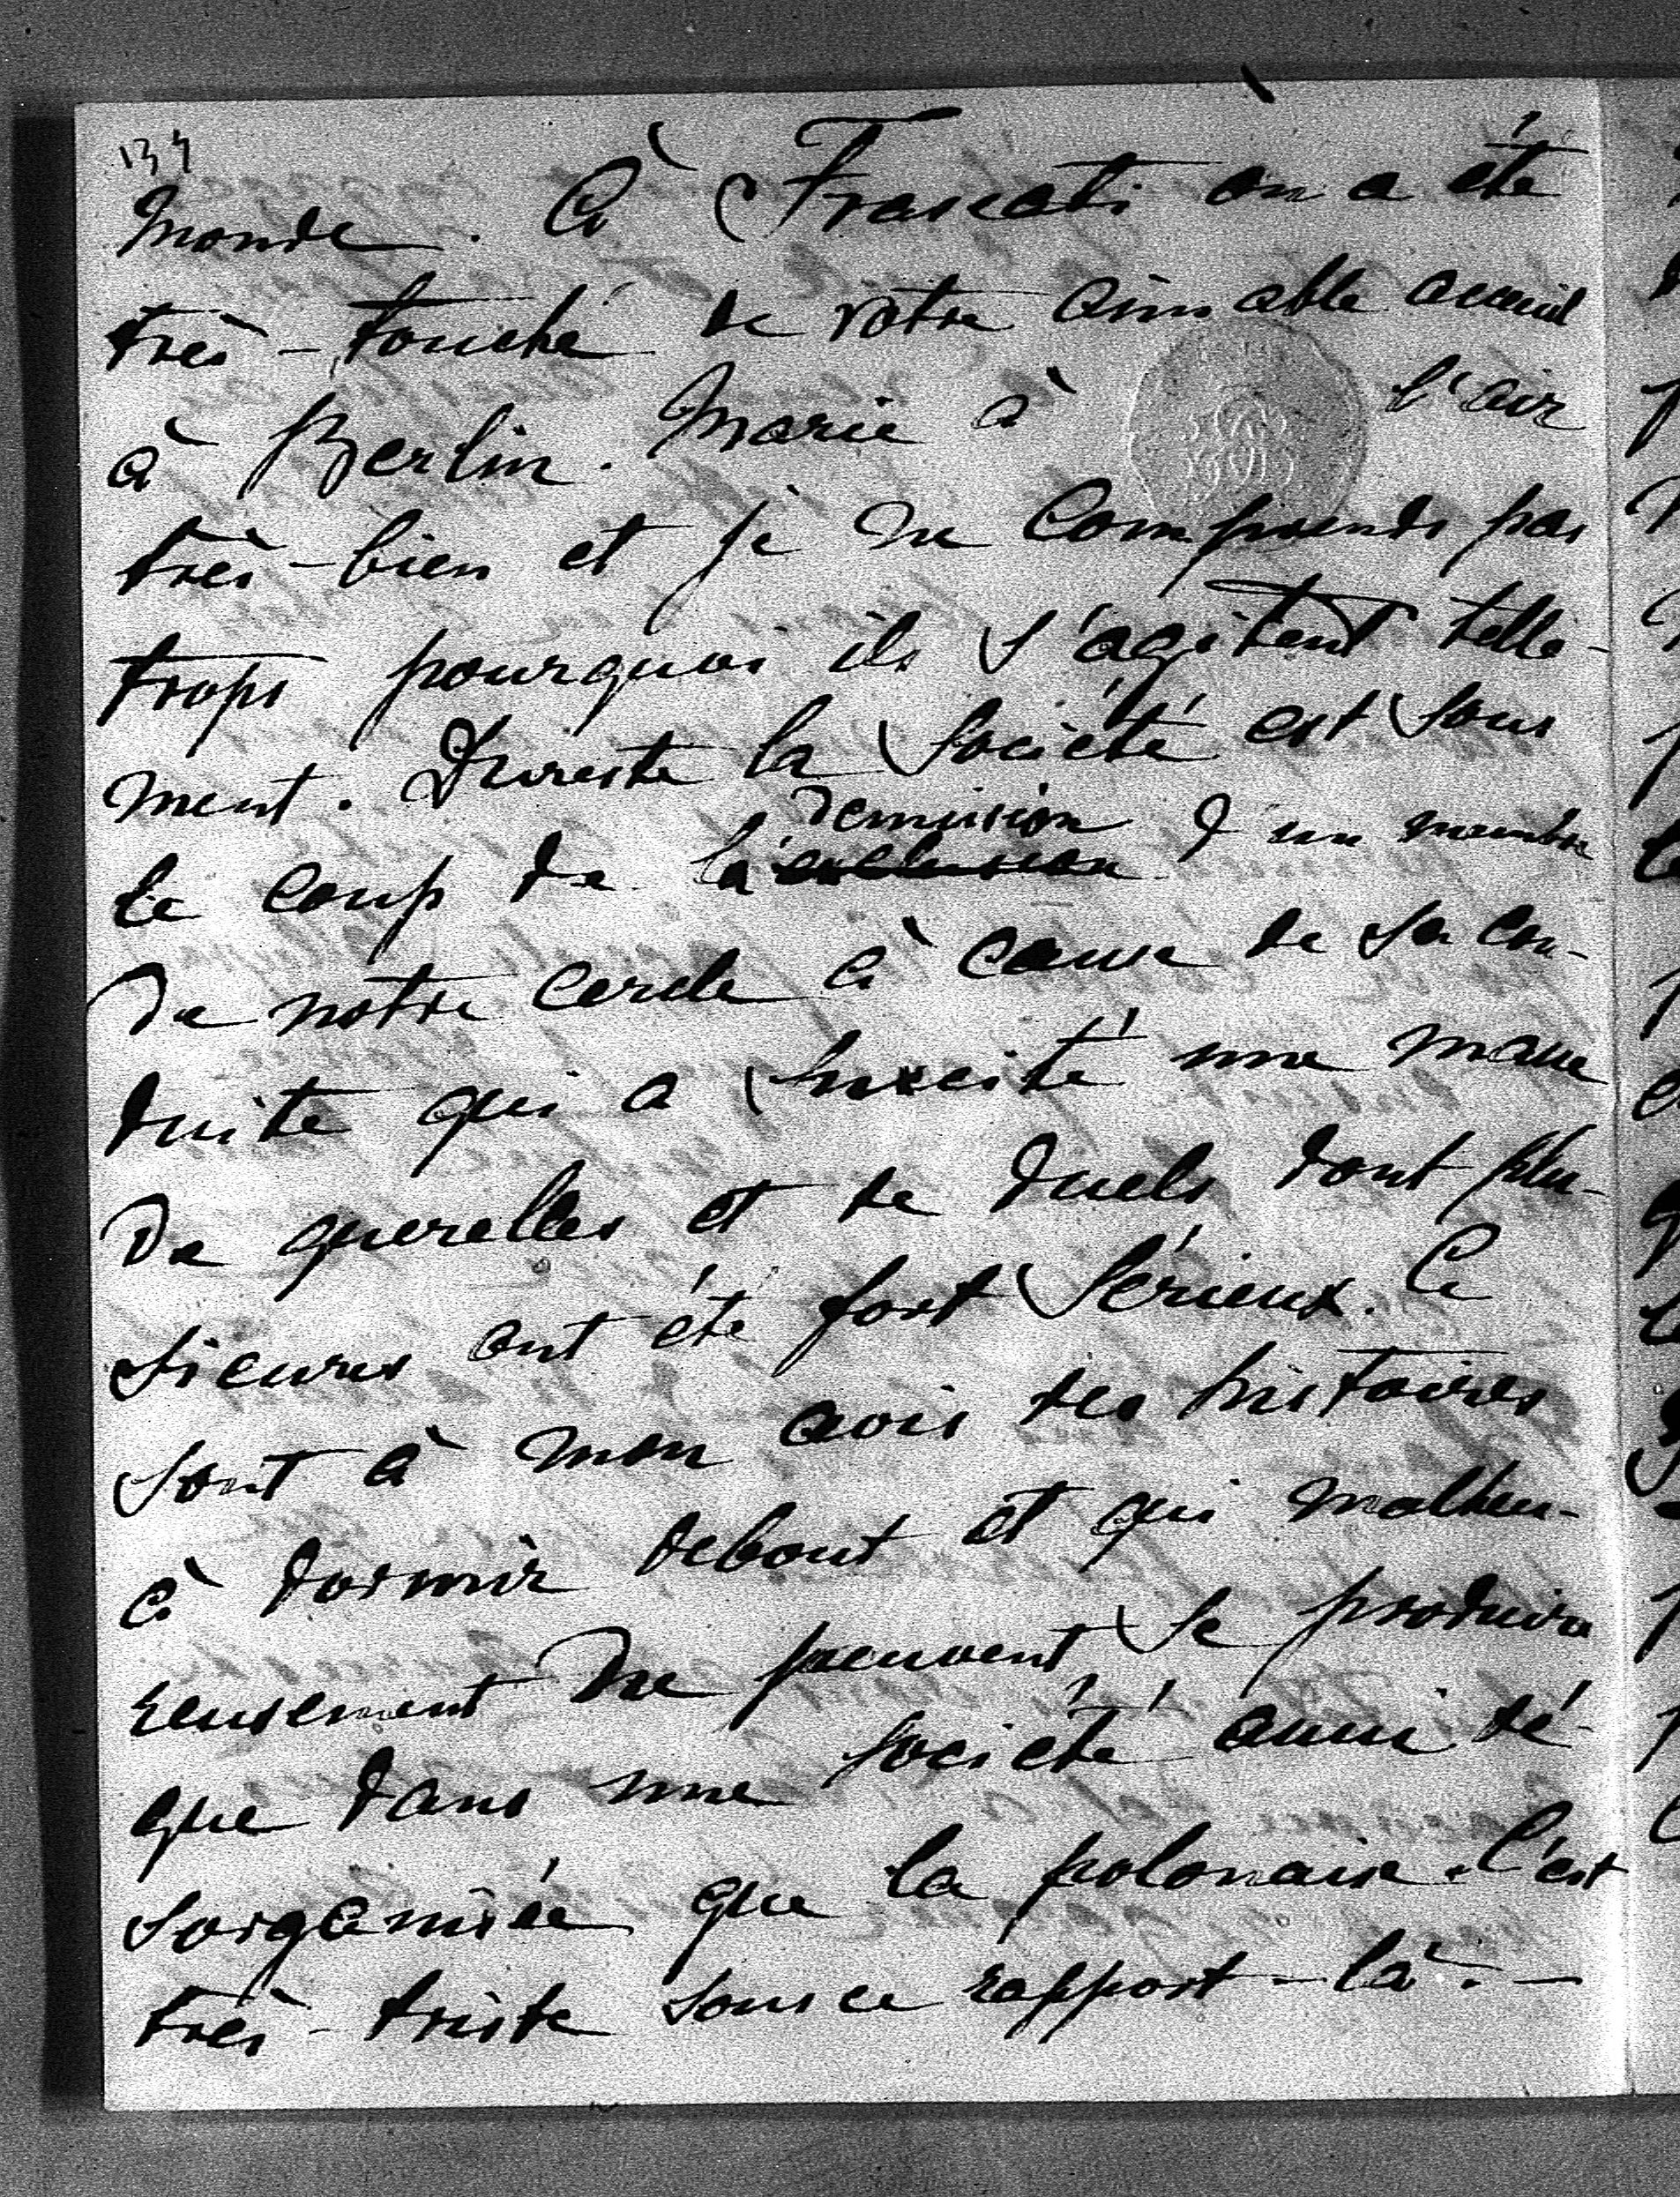 134
monde. À Frascati on a été
très-touché de votre aimable accueil
à Berlin. Marie à l'air
très-bien et je ne comprends pas
trops pourquoi ils s'agitent telle-
ment. Dureste la Société est sous
le coup de la démission d'un membre
de notre cercle à cause de sa con-
duite qui a suxcité une masse
de querelles et de duels dont plu-
sieures ont été fort sérieux. Ce
sont à mon avis des histoires
à dormir debout et qui malheu-
reusement ne peuvent se produire
que dans une société aussi dé-
sorganisée que la polonaise. C'est
très-triste sous ce rapport-là. –